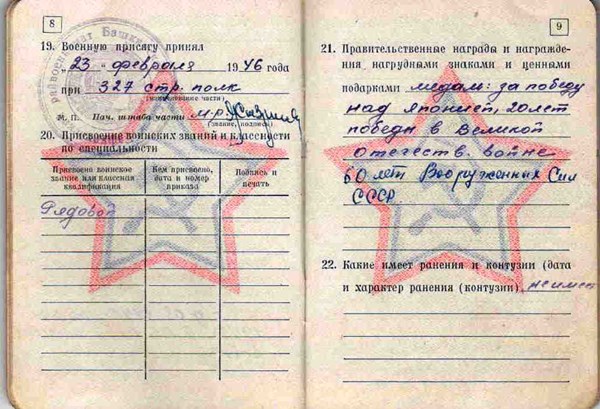 8
19. Военную присягу принял
„23" февраля 1946 года
при 327 стр. полк
(наименование части)
М. П. Нач. штаба части м-р
(звание, подпись)
20. Присвоение воинских званий и классности
по специальности
Присвоено воинское звание или классная квалификация
Кем присвоено, дата и номер приказа
Подпись и печать
Рядовой
9
21. Правительственные награды и награжде-
ния нагрудными знаками и ценными
подарками медал: за победу
над Японией, 20 лет
победы в Великой
отечеств. войне
60 лет Вооруженных Сил
СССР.
22. Какие имеет ранения и контузии (дата
и характер ранения (контузии) не имеет